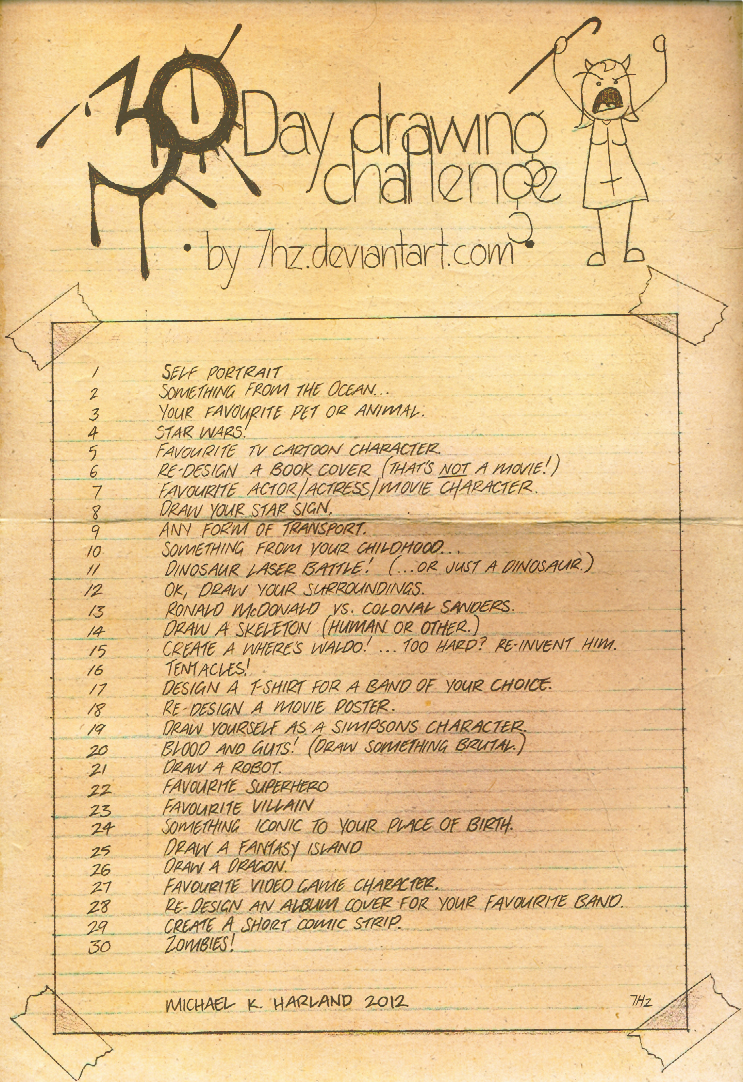 30 Day drawing
challenge
• by 7hz.deviantart.com •
1 SELF PORTRAIT
2 SOMETHING FROM THE OCEAN...
3 YOUR FAVOURITE PET OR ANIMAL.
4 STAR WARS!
5 FAVOURITE TV CARTOON CHARACTER.
6 RE-DESIGN A BOOK COVER (THAT'S NOT A MOVIE!)
7 FAVOURITE ACTOR/ACTRESS/MOVIE CHARACTER.
8 DRAW YOUR STAR SIGN.
9 ANY FORM OF TRANSPORT.
10 SOMETHING FROM YOUR CHILDHOOD...
11 DINOSAUR LASER BATTLE! (...OR JUST A DINOSAUR.)
12 OK, DRAW YOUR SURROUNDINGS.
13 RONALD McDONALD VS. COLONAL SANDERS.
14 DRAW A SKELETON (HUMAN OR OTHER.)
15 CREATE A WHERE'S WALDO! ... TOO HARD? RE-INVENT HIM.
16 TENTACLES!
17 DESIGN A T-SHIRT FOR A BAND OF YOUR CHOICE.
18 RE-DESIGN A MOVIE POSTER.
19 DRAW YOURSELF AS A SIMPSONS CHARACTER.
20 BLOOD AND GUTS! (DRAW SOMETHING BRUTAL.)
21 DRAW A ROBOT.
22 FAVOURITE SUPERHERO
23 FAVOURITE VILLAIN
24 SOMETHING ICONIC TO YOUR PLACE OF BIRTH.
25 DRAW A FANTASY ISLAND
26 DRAW A DRAGON.
27 FAVOURITE VIDEO GAME CHARACTER.
28 RE-DESIGN AN ALBUM COVER FOR YOUR FAVOURITE BAND.
29 CREATE A SHORT COMIC STRIP.
30 ZOMBIES!
MICHAEL K. HARLAND 2012 7Hz